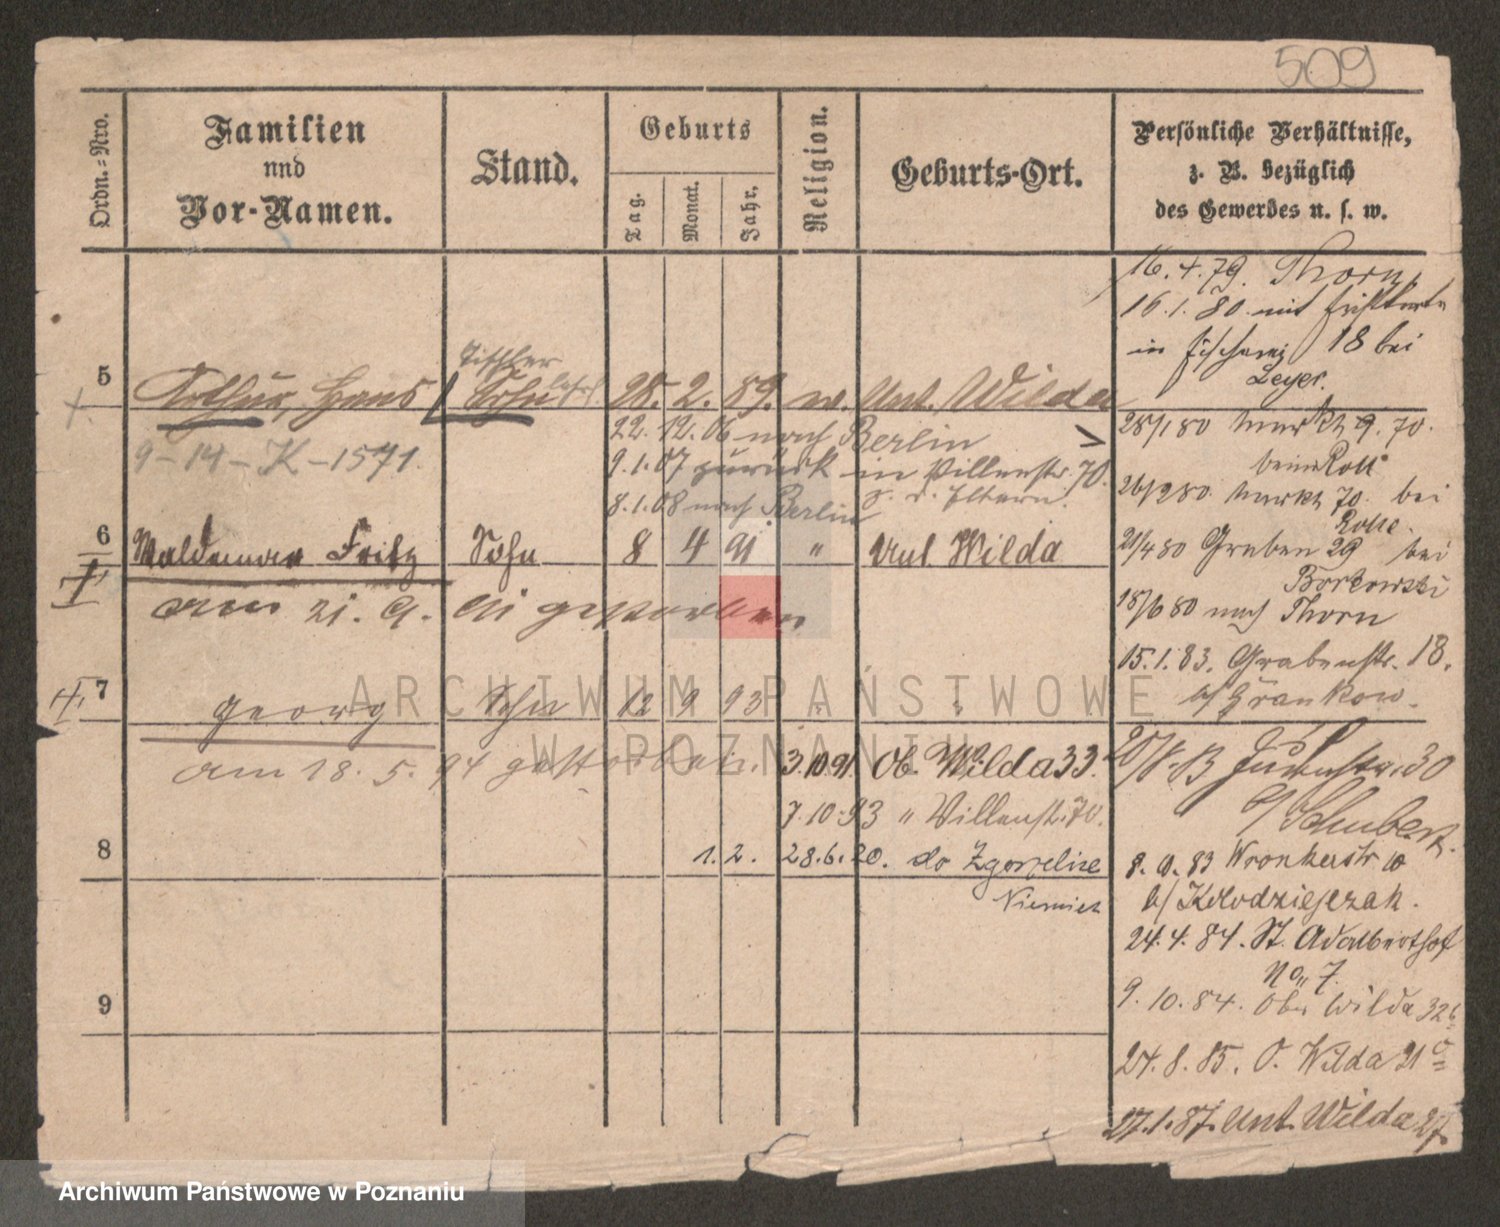 509
Ordn.=Nro.
Familien
und
Vor-Namen.
Stand.
Geburts
Tag.
Monat.
Jahr.
Religion.
Geburts-Ort.
Persönliche Verhältnisse,
z. B. bezüglich
des Gewerbes u. s. w.
16. 4. 79. Thorn,
16. 1. 80 mit
in 18 bei
Leyer.
5
Tischler
Arthur, Hans Sohn 28. 2. 89. w. Unt. Wilda
9-14-K-1571.
22. 12. 06 nach Berlin
9. 1. 07 zurück in Villenstr. 70.
z. d. Eltern.
8. 1. 08 nach Berlin
28/1 80 Markt 9. 70.
beim Rott
26/2 80. Markt 70. bei
Rotte.
6
Waldemar Fritz Sohn 8 4 91 " Unt. Wilda
am 21. 9. 91 gestorben
21/4 80 Graben 29 bei
Borkowski
18/6 80 nach Thorn
15. 1. 83. Grabenstr. 18.
b/ Grankow.
7
Georg Sohn 12 9 93 " "
am 18. 5. 94 gestorben.
3.10.91. Ob. Wilda 33.
7. 10. 93 " Villenst. 70.
8
1. 2. 28. 6. 20. do Zgorzelice
Niemiec
20/8. 83 30
b/ Schubert.
8. 9. 83 Wronkerstr 10
b/ Kołodziejczak.
24. 4. 84. St. Adalberthof
No 7.
9. 10. 84. Ober Wilda 32
9
24. 8. 85. O. Wilda 21
27. 1. 87. Unt. Wilda 27.
ARCHIWUM PAŃSTWOWE
W POZNANIU
Archiwum Państwowe w Poznaniu